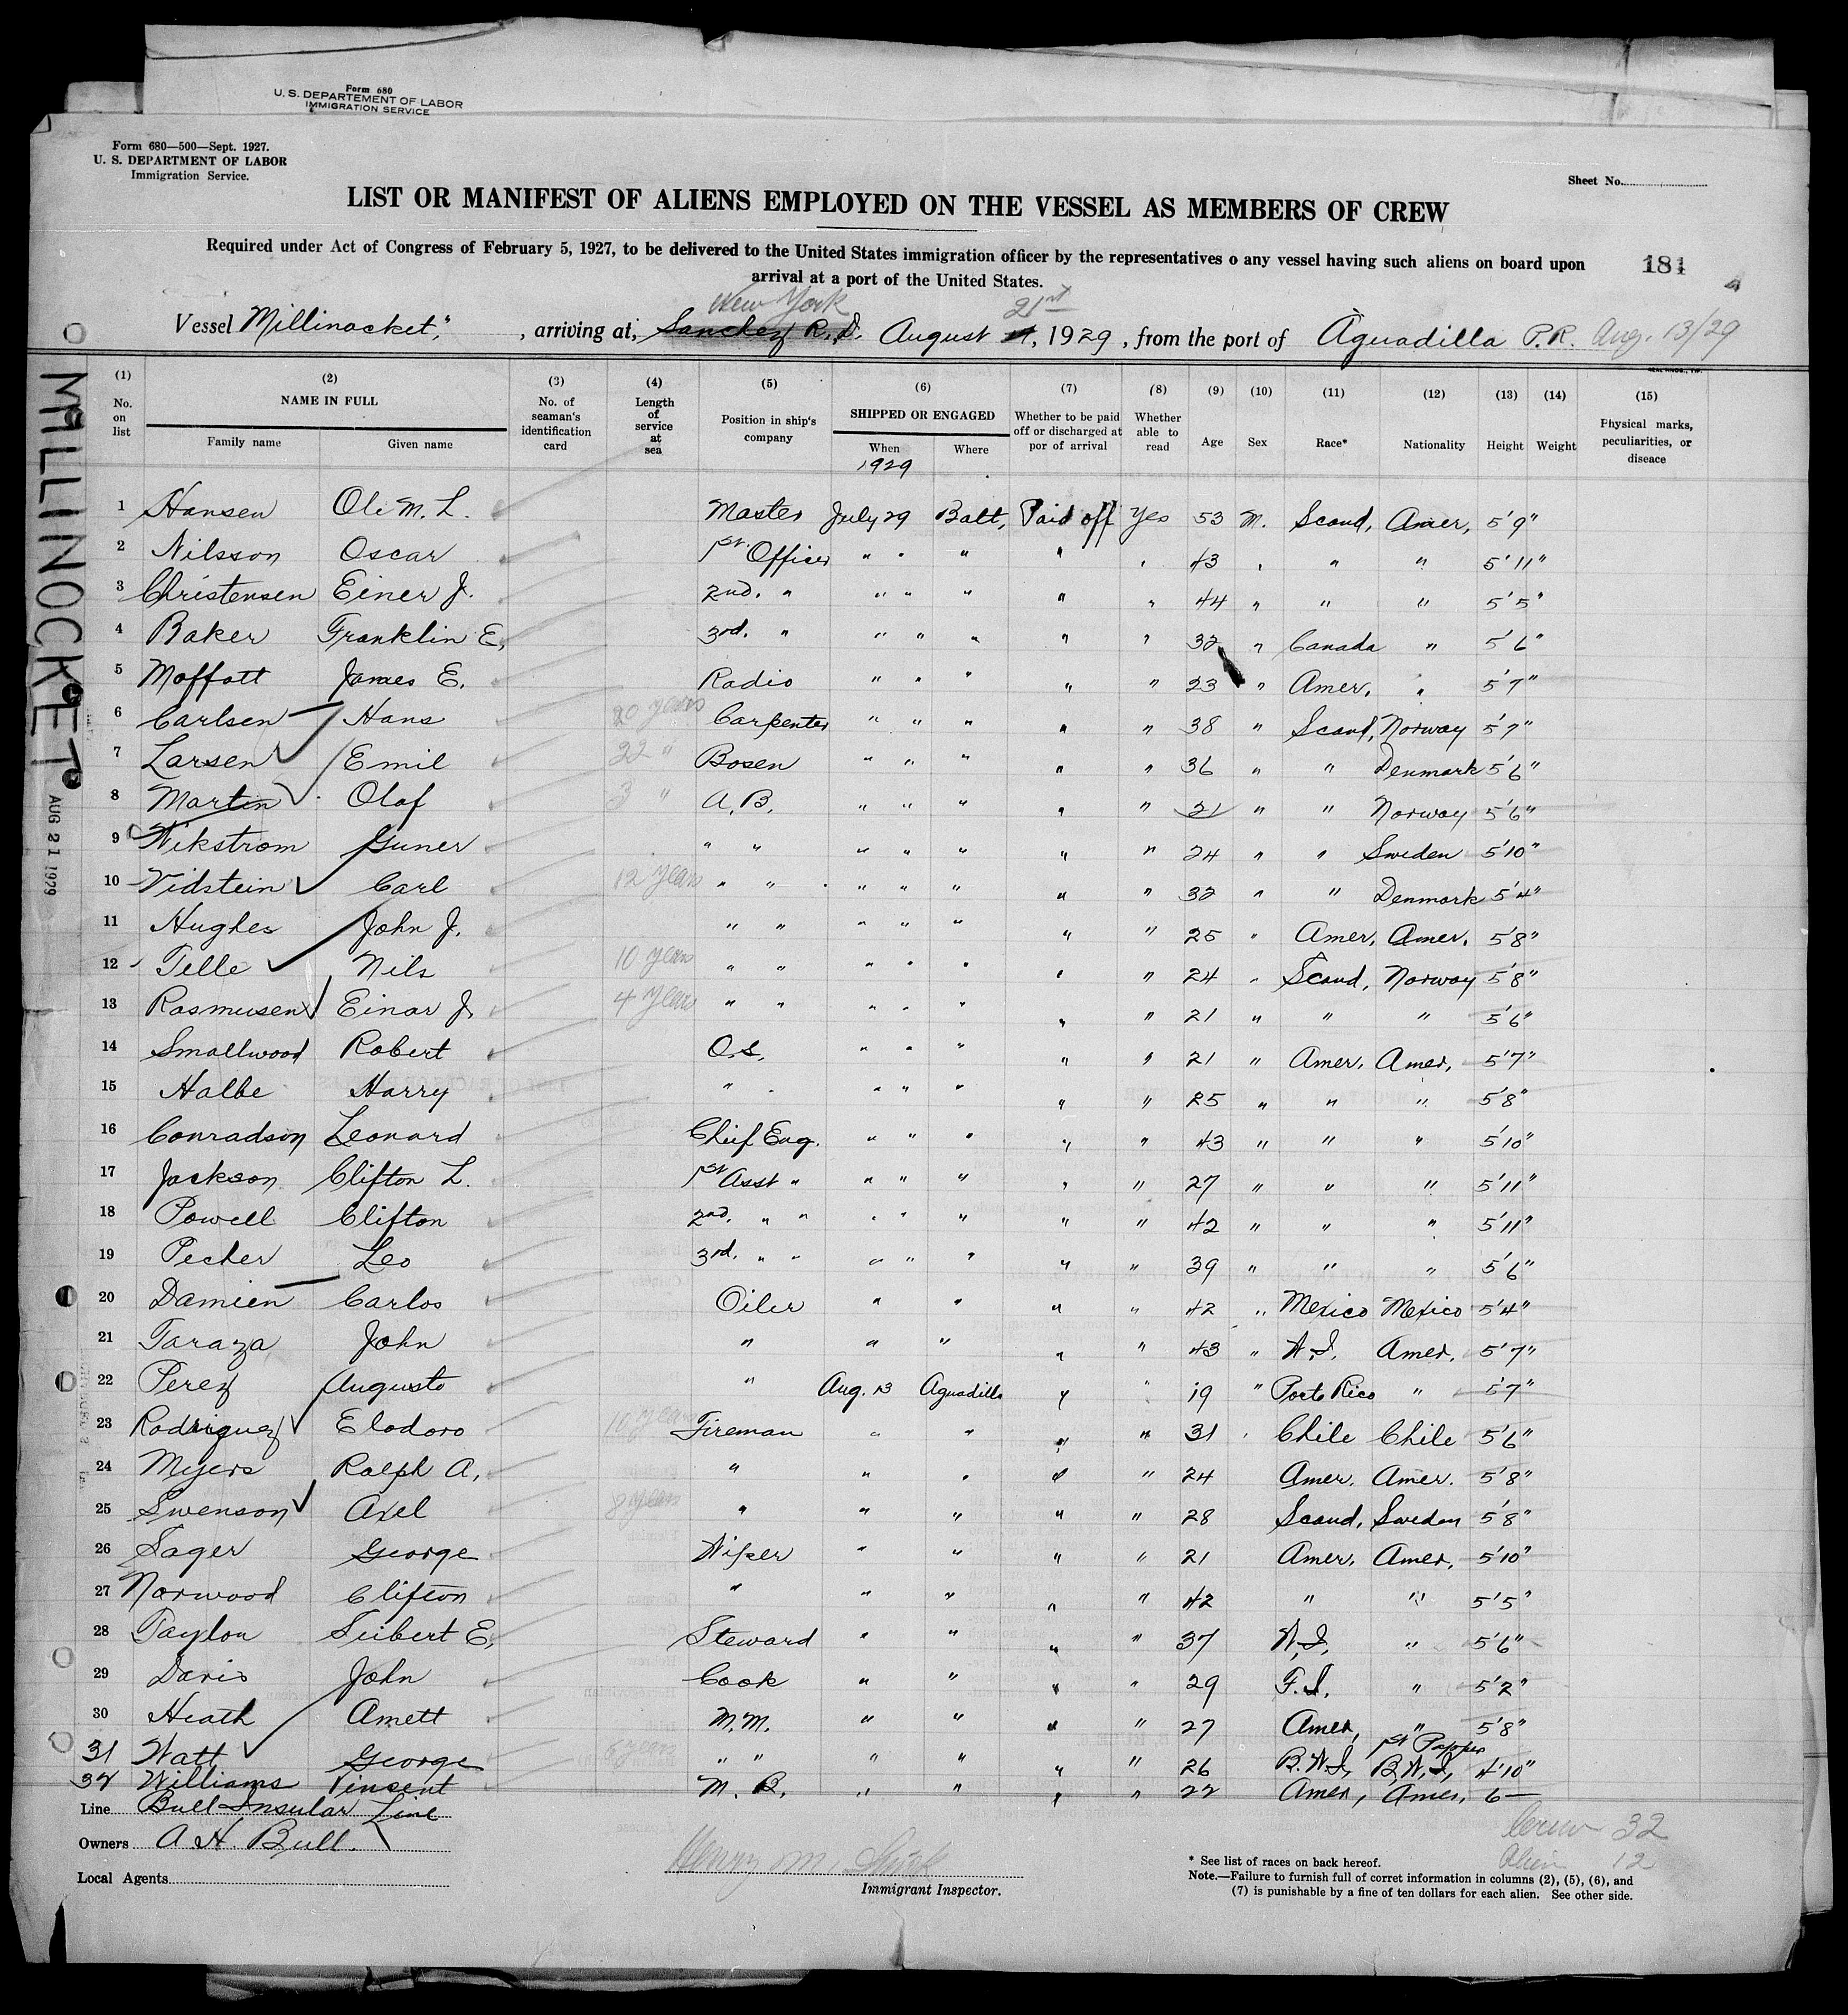 Form 680
U. S. DEPARTEMENT OF LABOR
IMMIGRATION SERVICE
Form 680—500—Sept. 1927.
U. S. DEPARTMENT OF LABOR
Immigration Service.
Sheet No.
LIST OR MANIFEST OF ALIENS EMPLOYED ON THE VESSEL AS MEMBERS OF CREW
Required under Act of Congress of February 5, 1927, to be delivered to the United States immigration officer by the representatives o any vessel having such aliens on board upon
arrival at a port of the United States.
181
New York 21st
Vessel Millinocket, , arriving at, Sanchez R.D. August , 1929 , from the port of Aguadilla P.R. Aug. 13/29
MILLINOCKET
AUG 21 1929
(1) No. on list
(2) NAME IN FULL Family name Given name
(3) No. of seaman's identification card
(4) Length of service at sea
(5) Position in ship's company
(6) SHIPPED OR ENGAGED When 1929 Where
(7) Whether to be paid off or discharged at por of arrival
(8) Whether able to read
(9) Age
(10) Sex
(11) Race*
(12) Nationality
(13) Height
(14) Weight
(15) Physical marks, peculiarities, or diseace
1 Hansen Ole M. L. Master July 29 Balt, Paid off Yes 53 M. Scand, Amer, 5'9"
2 Nilsson Oscar 1st Officer " " " " " 43 " " " 5'11"
3 Christensen Einer J. 2nd. " " " " " " 44 " " " 5'5"
4 Baker Franklin E, 3rd. " " " " " " 32 " Canada " 5'6"
5 Moffatt James E. Radio " " " " " 23 " Amer, " 5'7"
6 Carlsen Hans 20 years Carpenter " " " " " 38 " Scand, Norway 5'7"
7 Larsen Emil 22 " Bosen " " " " " 36 " " Denmark 5'6"
8 Martin Olaf 3 " A.B. " " " " " 21 " " Norway 5'6"
9 Wikstrom Guner " " " " " " " 24 " " Sweden 5'10"
10 Vidstein Carl 12 years " " " " " " " 32 " " Denmark 5'4"
11 Hughes John J. " " " " " " " 25 " Amer, Amer. 5'8"
12 Telle Nils 10 years " " " " " " " 24 " Scand, Norway 5'8"
13 Rasmusen Einar J, 4 years " " " " " " " 21 " " " 5'6"
14 Smallwood Robert O.S. " " " " " 21 " Amer. Amer, 5'7"
15 Halbe Harry " " " " " " " 25 " " " 5'8"
16 Conradson Leonard Chief Eng. " " " " " 43 " " " 5'10"
17 Jackson Clifton L. 1st Asst " " " " " " 27 " " " 5'11"
18 Powell Clifton 2nd. " " " " " " " 42 " " " 5'11"
19 Pecher Leo 3rd. " " " " " " " 39 " " " 5'6"
20 Damien Carlos Oiler " " " " 42 " Mexico Mexico 5'4"
21 Taraza John " " " " " 43 " W.I. Amer. 5'7"
22 Perez Augusto " Aug. 13 Aguadilla " " 19 " Porto Rico " 5'7"
23 Rodriguez Elodoro 10 years Fireman " " " " 31 " Chile Chile 5'6"
24 Myers Ralph A, " " " " " 24 Amer. Amer. 5'8"
25 Swenson Axel 8 years " " " " " 28 Scand, Sweden 5'8"
26 Sager George Wiper " " " " 21 Amer, Amer, 5'10"
27 Norwood Clifton " " " " " 42 " " 5'5"
28 Taylon Seibert E, Steward " " " " 37 W.I, " 5'6"
29 Davis John Cook " " " " 29 F.I. " 5'2"
30 Heath Amett M.M. " " " " 27 Amer, " 5'8"
31 Watt George 6 years " " " " " " 26 B.W.I, 1st Papper B.W.I, 4'10"
32 Williams Vincent M.B. " " " " 22 Amer, Amer. 6—
Line Bull Insular Line
Owners A. H. Bull.
Local Agents
Henry M.
Immigrant Inspector.
Crew 32
Alien 12
* See list of races on back hereof.
Note.—Failure to furnish full of corret information in columns (2), (5), (6), and
(7) is punishable by a fine of ten dollars for each alien. See other side.